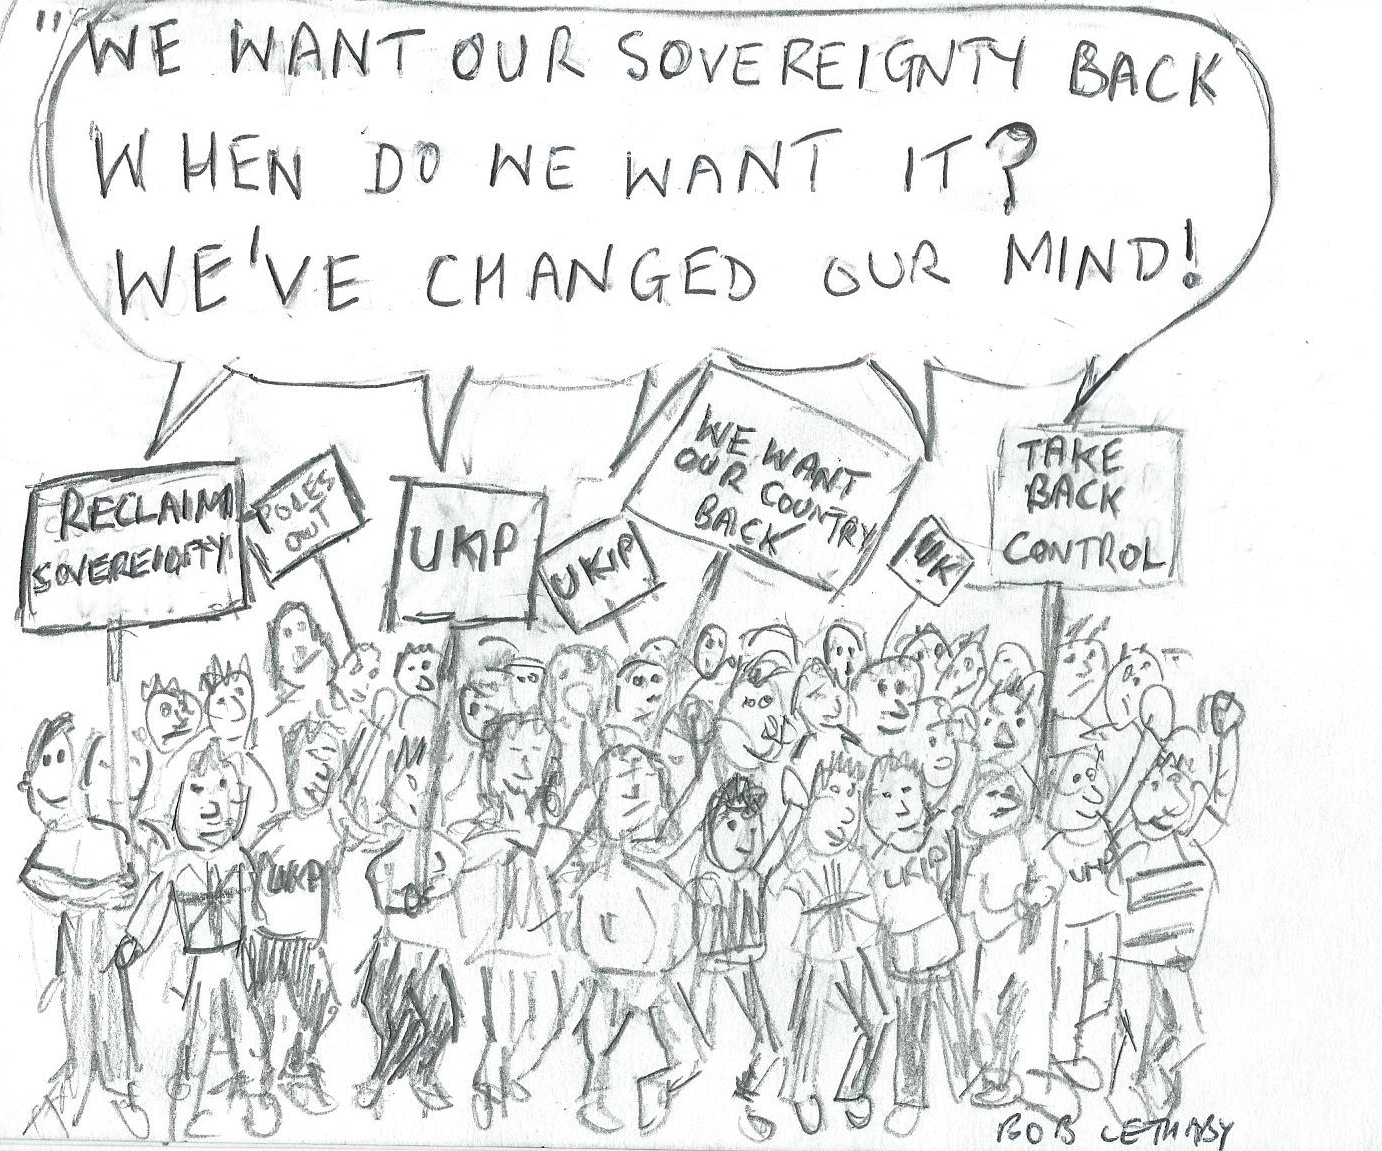 "WE WANT OUR SOVEREIGNTY BACK
WHEN DO WE WANT IT?
WE'VE CHANGED OUR MIND!
RECLAIM
SOVEREIGTY
POLES
OUT
UKIP
UKIP
WE WANT
OUR COUNTRY
BACK
UK
TAKE
BACK
CONTROL
UKIP
UKIP
UKIP
BOB LETHABY